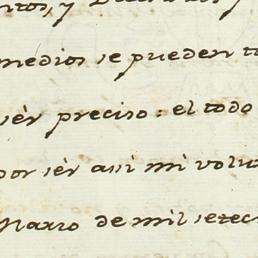 ntos, y
medios se pueden to
sér preciso: el todo
por sér asi mi volun
Marzo de mil setec